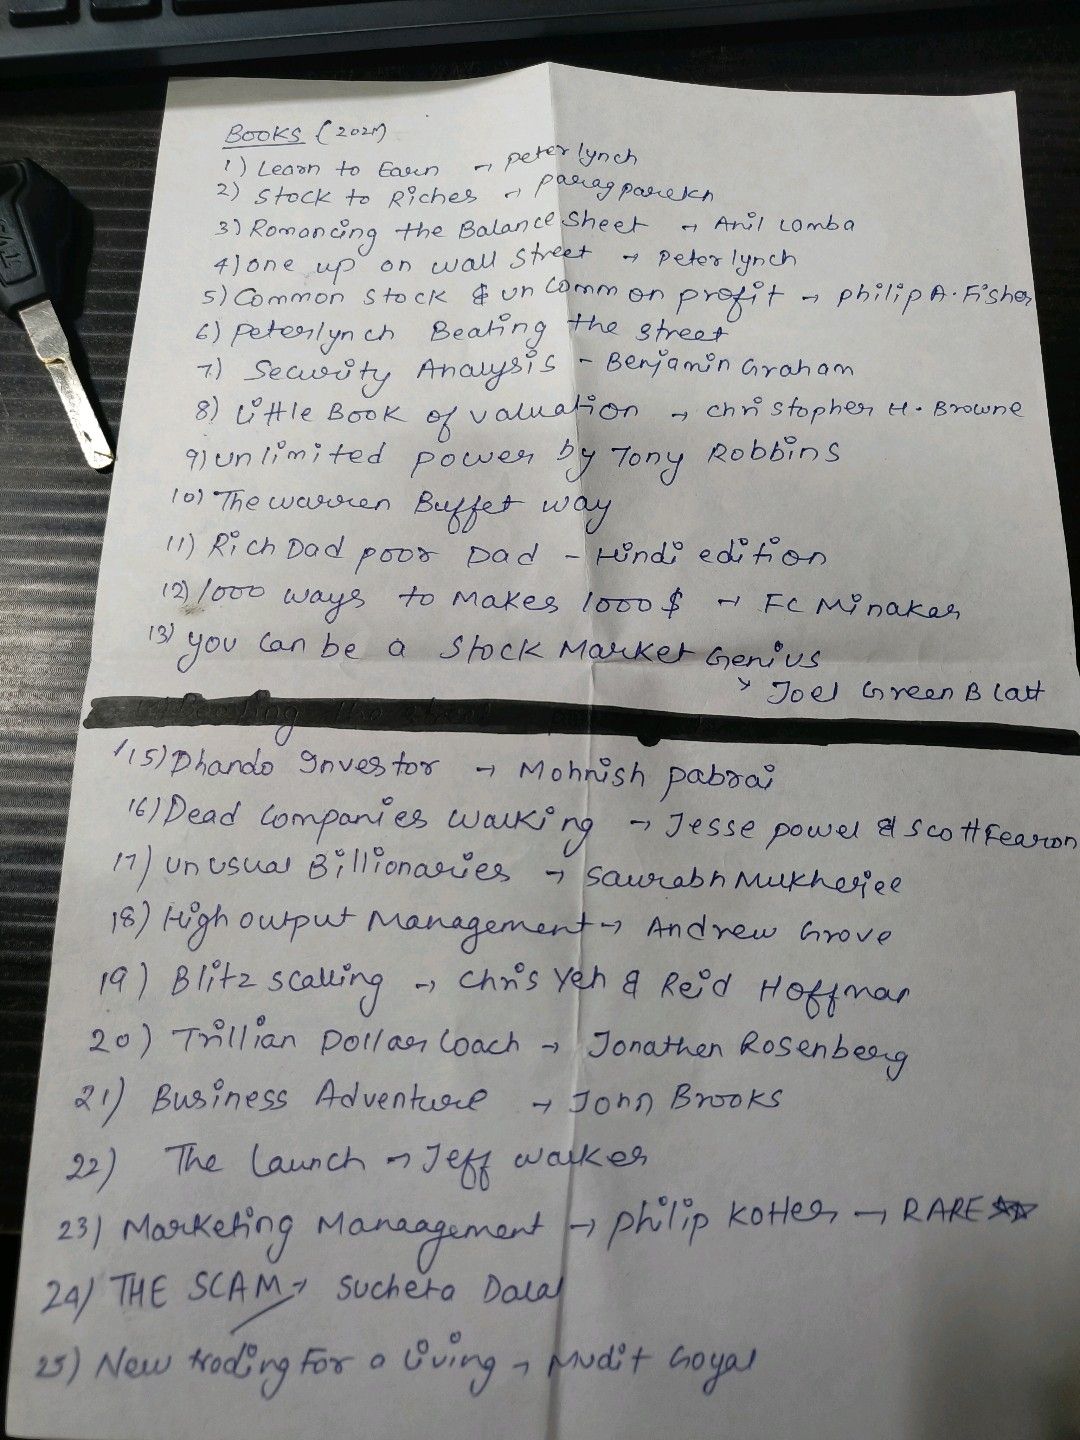 BOOKS (2021)
1) Learn to Earn → peter lynch
2) Stock to Riches → parag parekh
3) Romancing the Balance Sheet → Anil Lamba
4) one up on wall Street → Peter lynch
5) Common Stock & un Common profit → philip A. Fisher
6) Peter lynch Beating the street
7) Security Analysis - Benjamin Graham
8) Little Book of valuation → christopher H. Browne
9) unlimited power by Tony Robbins
10) The warren Buffet way
11) Rich Dad poor Dad - Hindi edition
12) 1000 ways to Makes 1000$ → FC Minaker
13) you can be a Stock Market Genius
→ Joel Green Blatt
15) Dhando Investor → Mohnish pabrai
16) Dead Companies walking → Jesse powel & Scott Fearon
17) unusual Billionaries → Saurabh Mukherjee
18) High output Management → Andrew Grove
19) Blitz scalling → Chris Yeh & Reid Hoffman
20) Trillian Dollar Coach → Jonathen Rosenberg
21) Business Adventure → John Brooks
22) The Launch → Jeff walker
23) Marketing Manaagement → philip Kotler → RARE
24) THE SCAM → Sucheta Dalal
25) New trading For a living → Mudit Goyal